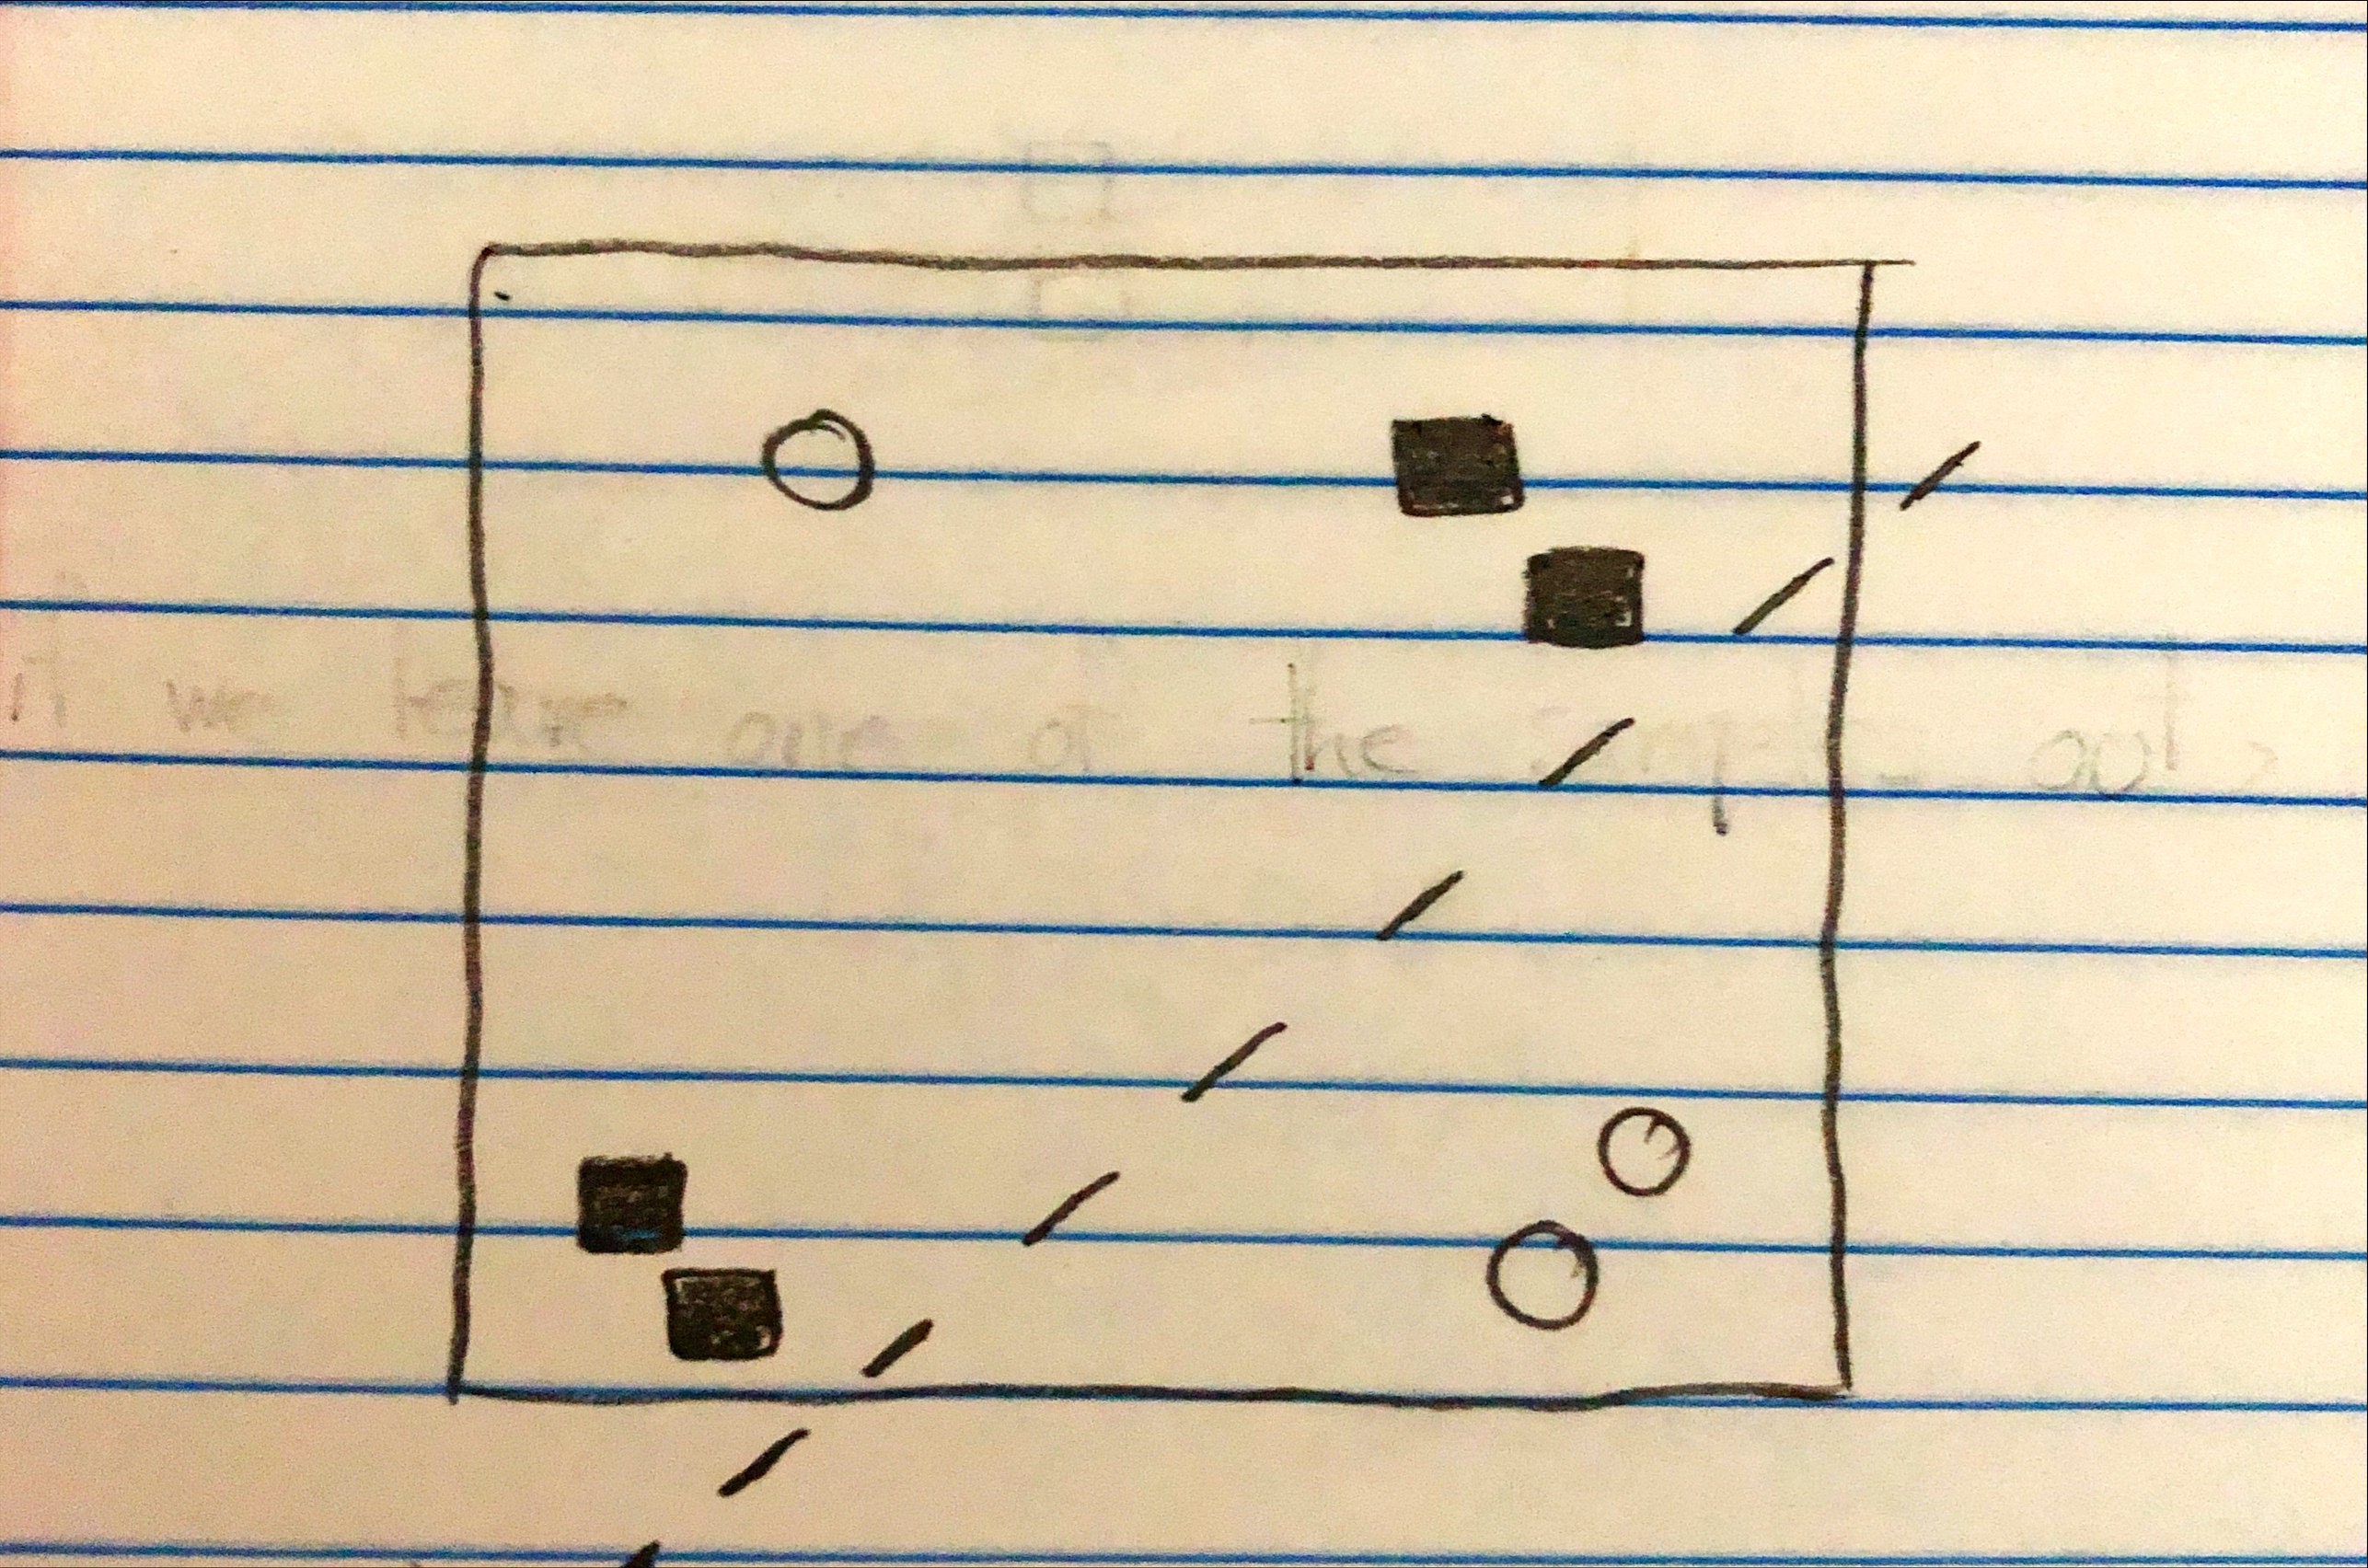 if we leave one of the samples out,